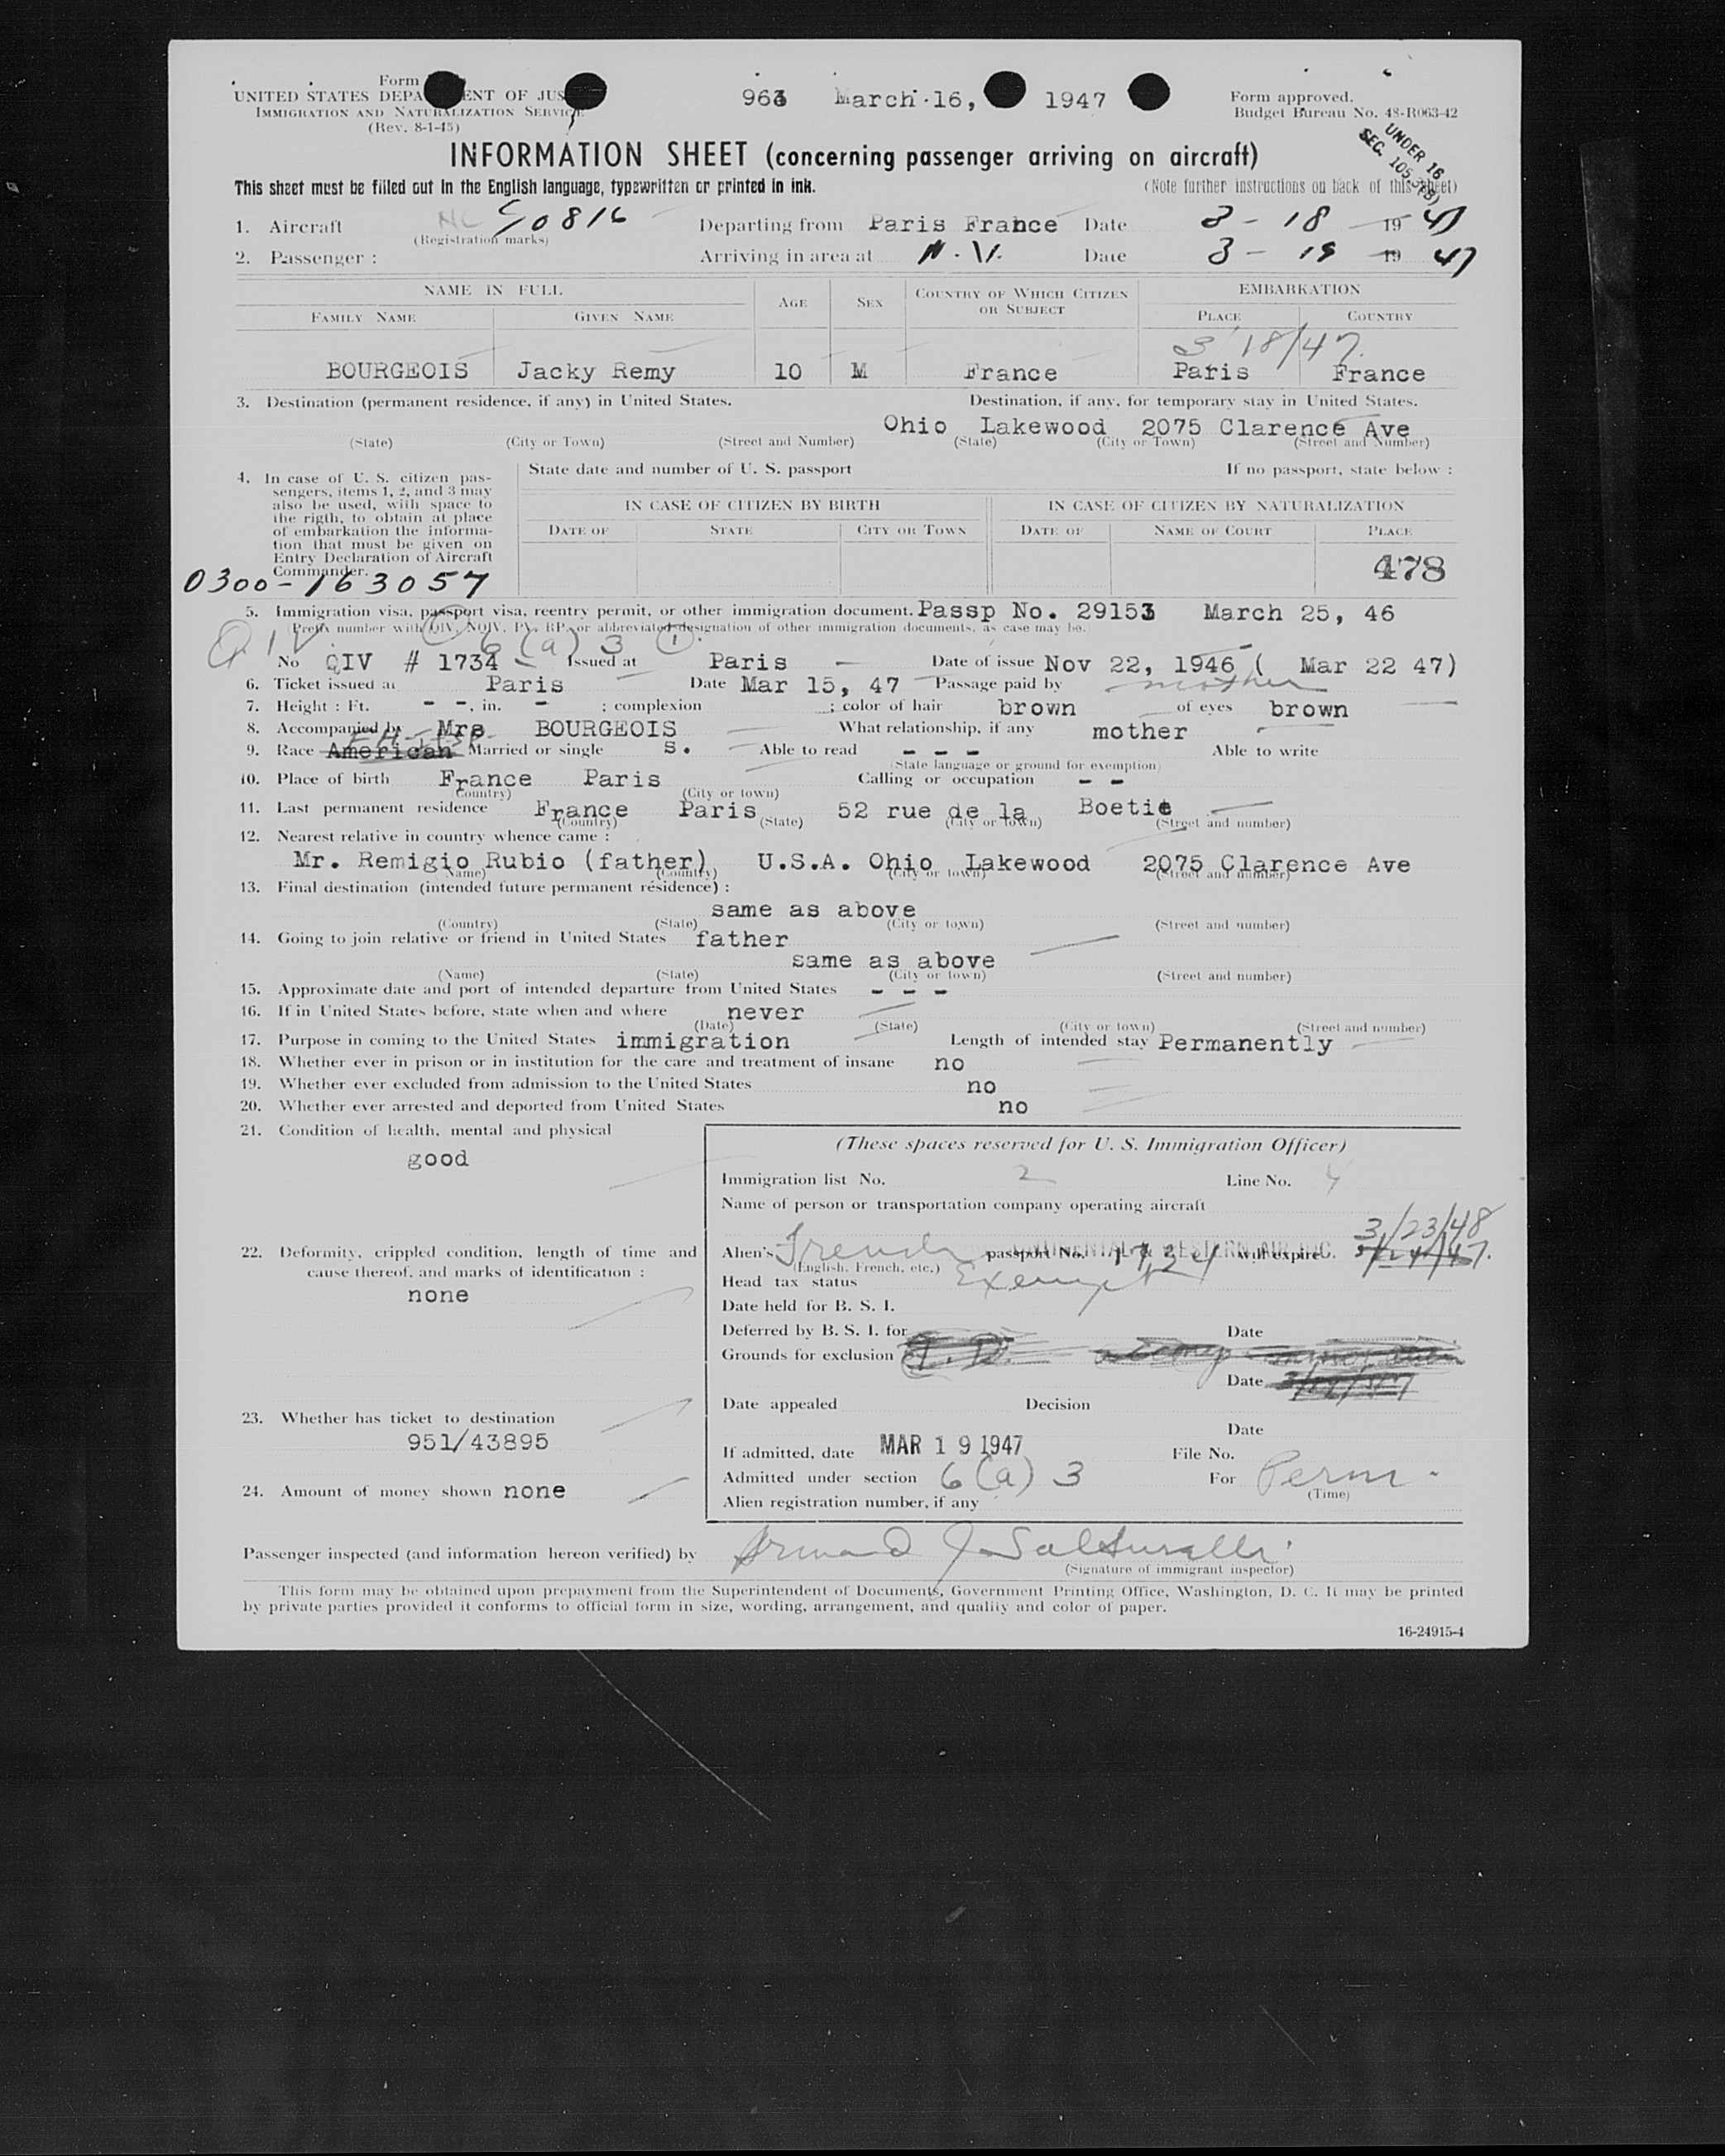 Form
UNITED STATES DEPA ENT OF JUS
IMMIGRATION AND NATURALIZATION SERVICE
(Rev. 8-1-45)
963 March 16, 1947
Form approved.
Budget Bureau No. 48-R063-42
UNDER 16
SEC. 105.3(B)
INFORMATION SHEET (concerning passenger arriving on aircraft)
This sheet must be filled out in the English language, typewritten or printed in ink. (Note further instructions on back of this sheet)
1. Aircraft NC 90816 Departing from Paris France Date 3 - 18 - 19 47
(Registration marks)
2. Passenger : Arriving in area at N.Y. Date 3 - 19 - 19 47
NAME IN FULL AGE SEX COUNTRY OF WHICH CITIZEN OR SUBJECT EMBARKATION
FAMILY NAME GIVEN NAME PLACE COUNTRY
3/18/47
BOURGEOIS Jacky Remy 10 M France Paris France
3. Destination (permanent residence, if any) in United States. Destination, if any, for temporary stay in United States.
Ohio Lakewood 2075 Clarence Ave
(State) (City or Town) (Street and Number) (State) (City or Town) (Street and Number)
4. In case of U. S. citizen pas-
sengers, items 1, 2, and 3 may
also be used, with space to
the rigth, to obtain at place
of embarkation the informa-
tion that must be given on
Entry Declaration of Aircraft
Commander.
State date and number of U. S. passport If no passport, state below :
IN CASE OF CITIZEN BY BIRTH IN CASE OF CITIZEN BY NATURALIZATION
DATE OF STATE CITY OR TOWN DATE OF NAME OF COURT PLACE
478
0300-163057
5. Immigration visa, passport visa, reentry permit, or other immigration document. Passp No. 29153 March 25, 46
(Prefix number with QIV, NQIV, PV, RP, or abbreviated designation of other immigration documents, as case may be.
QIV 6 (a) 3 1
No QIV # 1734 Issued at Paris Date of issue Nov 22, 1946 ( Mar 22 47)
6. Ticket issued at Paris Date Mar 15, 47 Passage paid by mother
7. Height : Ft. - -, in. - ; complexion ; color of hair brown of eyes brown
8. Accompanied by Mrs BOURGEOIS What relationship, if any mother
9. Race American Married or single s. Able to read - - - Able to write
(State language or ground for exemption)
10. Place of birth France Paris Calling or occupation - -
(Country) (City or town)
11. Last permanent residence France Paris 52 rue de la Boetie
(Country) (State) (City or town) (Street and number)
12. Nearest relative in country whence came :
Mr. Remigio Rubio (father) U.S.A. Ohio Lakewood 2075 Clarence Ave
(Name) (Country) (City or town) (Street and number)
13. Final destination (intended future permanent résidence) :
same as above
(Country) (State) (City or town) (Street and number)
14. Going to join relative or friend in United States father
same as above
(Name) (State) (City or town) (Street and number)
15. Approximate date and port of intended departure from United States - - -
16. If in United States before, state when and where never
(Date) (State) (City or town) (Street and number)
17. Purpose in coming to the United States immigration Length of intended stay Permanently
18. Whether ever in prison or in institution for the care and treatment of insane no
19. Whether ever excluded from admission to the United States no
20. Whether ever arrested and deported from United States no
21. Condition of health, mental and physical
good
22. Deformity, crippled condition, length of time and
cause thereof, and marks of identification :
none
23. Whether has ticket to destination
951/43895
24. Amount of money shown none
(These spaces reserved for U. S. Immigration Officer)
Immigration list No. 2 Line No. 4
Name of person or transportation company operating aircraft
3/23/48
Alien's French passport No. 1734 will expire
(English, French, etc.)
Head tax status Exempt
Date held for B. S. I.
Deferred by B. S. I. for Date
Grounds for exclusion
Date
Date appealed Decision
Date
If admitted, date MAR 19 1947 File No.
Admitted under section 6 (a) 3 For Perm.
(Time)
Alien registration number, if any
Passenger inspected (and information hereon verified) by
(Signature of immigrant inspector)
This form may be obtained upon prepayment from the Superintendent of Documents, Government Printing Office, Washington, D. C. It may be printed
by private parties provided it conforms to official form in size, wording, arrangement, and quality and color of paper.
16-24915-4